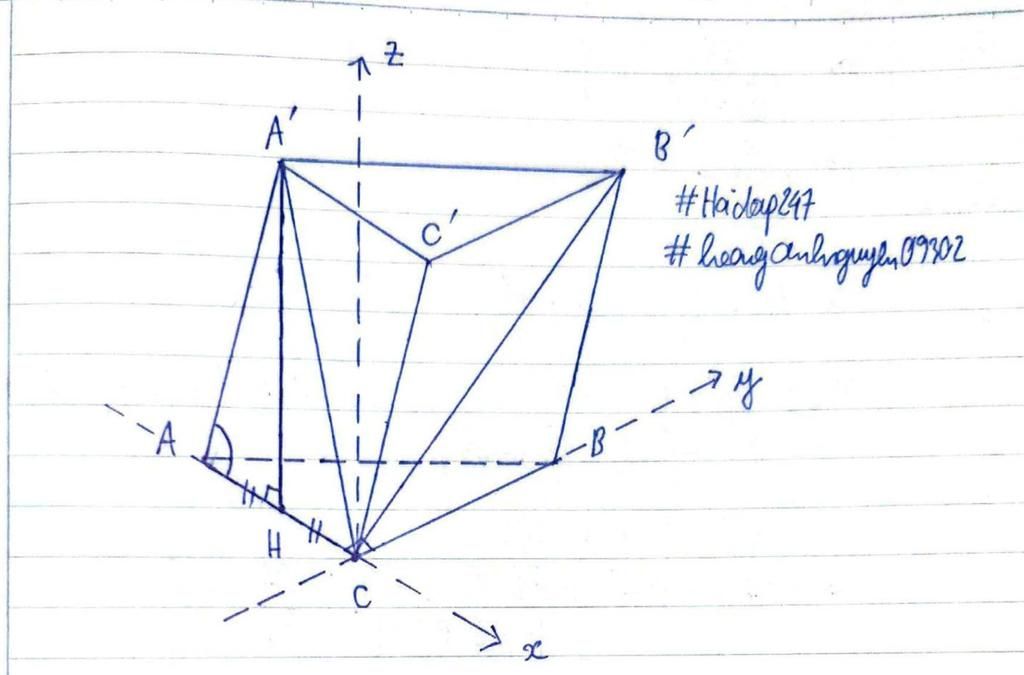 z
A'
B'
#Hoidap247
C'
#hoanganhnguyen09302
y
A
B
H
C
x